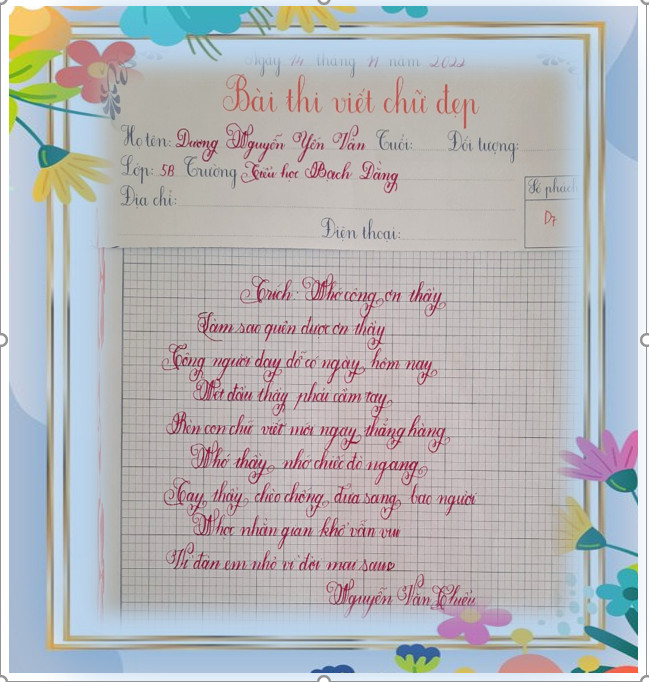 Ngày 14 tháng 11 năm 2022
Bài thi viết chữ đẹp
Họ tên: Dương Nguyễn Yến Vân Tuổi: Đối tượng:
Lớp: 5B Trường Tiểu học Bạch Đằng
Địa chỉ:
Số phách
D7
Điện thoại:
Trích: Nhớ công ơn thầy
Làm sao quên được ơn thầy
Công người dạy dỗ có ngày hôm nay
Mới đầu thầy phải cầm tay
Rèn con chữ viết mới ngay thẳng hàng
Nhớ thầy, nhớ chiếc đò ngang
Tay thầy chèo chống đưa sang bao người
Nhọc nhằn gian khổ vẫn vui
Vì đàn em nhỏ vì đời mai sau
Nguyễn Văn Thiều